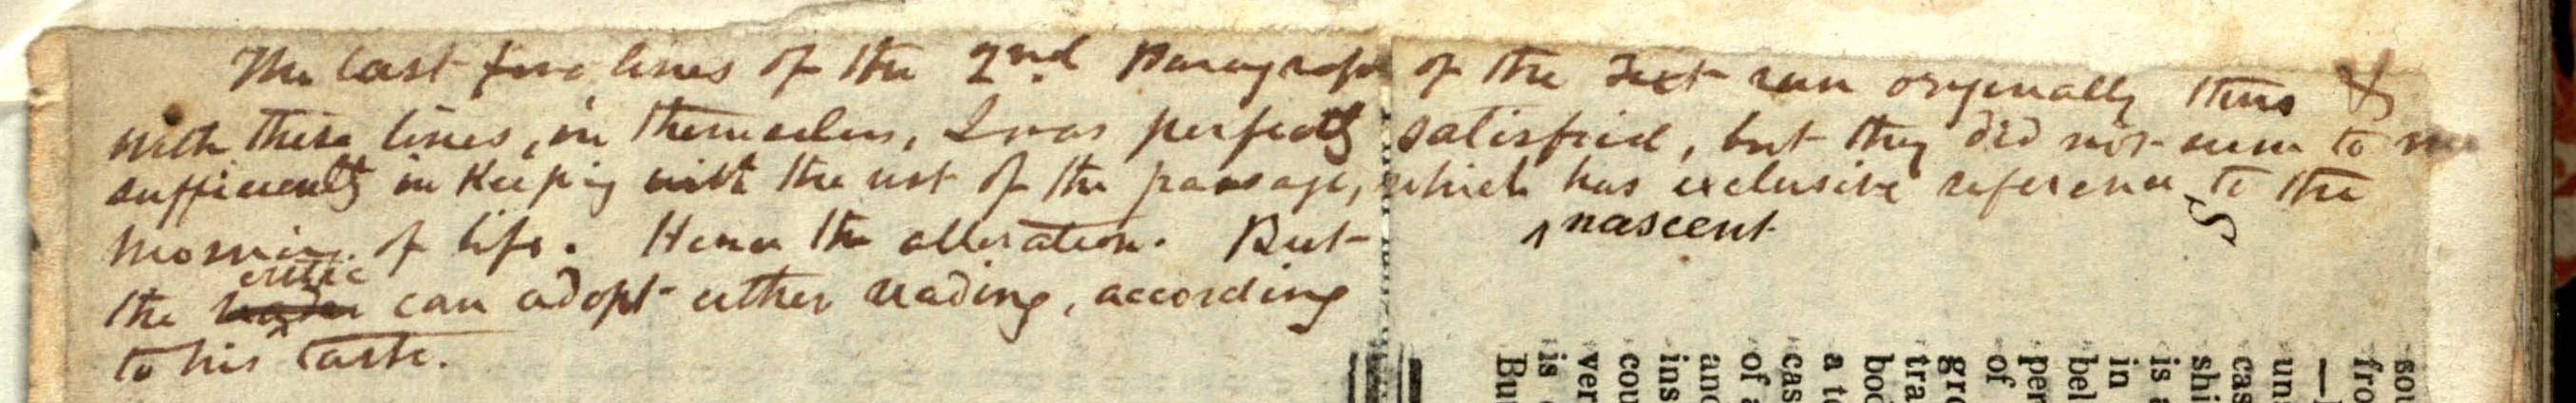 The last five lines of the 2nd Paragraph of the Text run originally thus
with these lines, in themselves, I was perfectly satisfied, but they did not seem to me
sufficiently in keeping with the rest of the passage, which has exclusive reference to the
morning of life. Hence the alteration. But
nascent
critic
the reader can adopt either reading, according
to his taste.
sou
fro
—
uns
cas
shi
is a
in
bel
per
of
gro
tra
bod
a to
cas
of a
and
ins
cou
ver
is
But